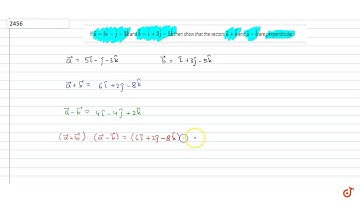 2456
If a⃗ = 5î − ĵ − 3k̂ and b⃗ = î + 3ĵ − 5k̂ then show that the vectors a⃗ + b⃗ and a⃗ − b⃗ are perpendicular
a⃗ = 5î − ĵ − 3k̂ b⃗ = î + 3ĵ − 5k̂
a⃗ + b⃗ = 6î + 2ĵ − 8k̂
a⃗ − b⃗ = 4î − 4ĵ + 2k̂
(a⃗ + b⃗) (a⃗ − b⃗) = (6î + 2ĵ − 8k̂)